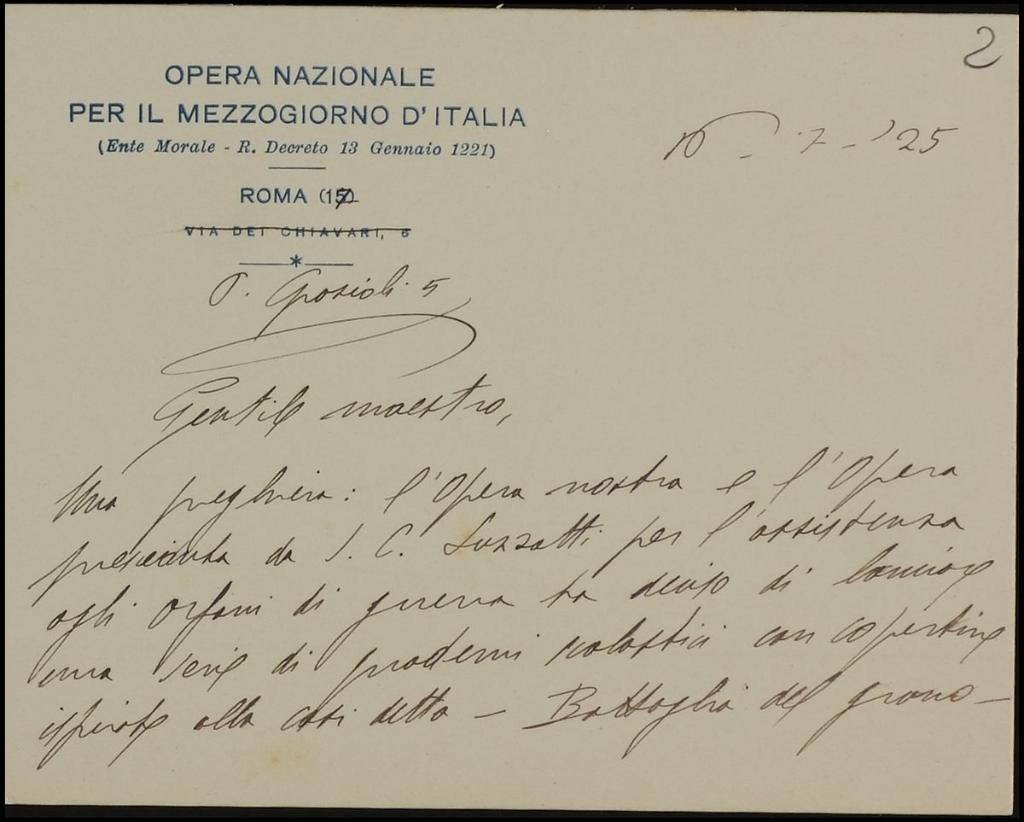 2
OPERA NAZIONALE
PER IL MEZZOGIORNO D'ITALIA
(Ente Morale - R. Decreto 13 Gennaio 1221)
10 - 7 - '25
ROMA (17)
VIA DEI CHIAVARI, 6
P. Grazioli 5
Gentile maestro,
Una preghiera: l'Opera nostra e l'Opera
presieduta da S. E. Luzzatti per l'assistenza
agli orfani di guerra ha deciso di lanciare
una serie di quaderni scolastici con copertine
ispirate alla così detta — Battaglia del grano —